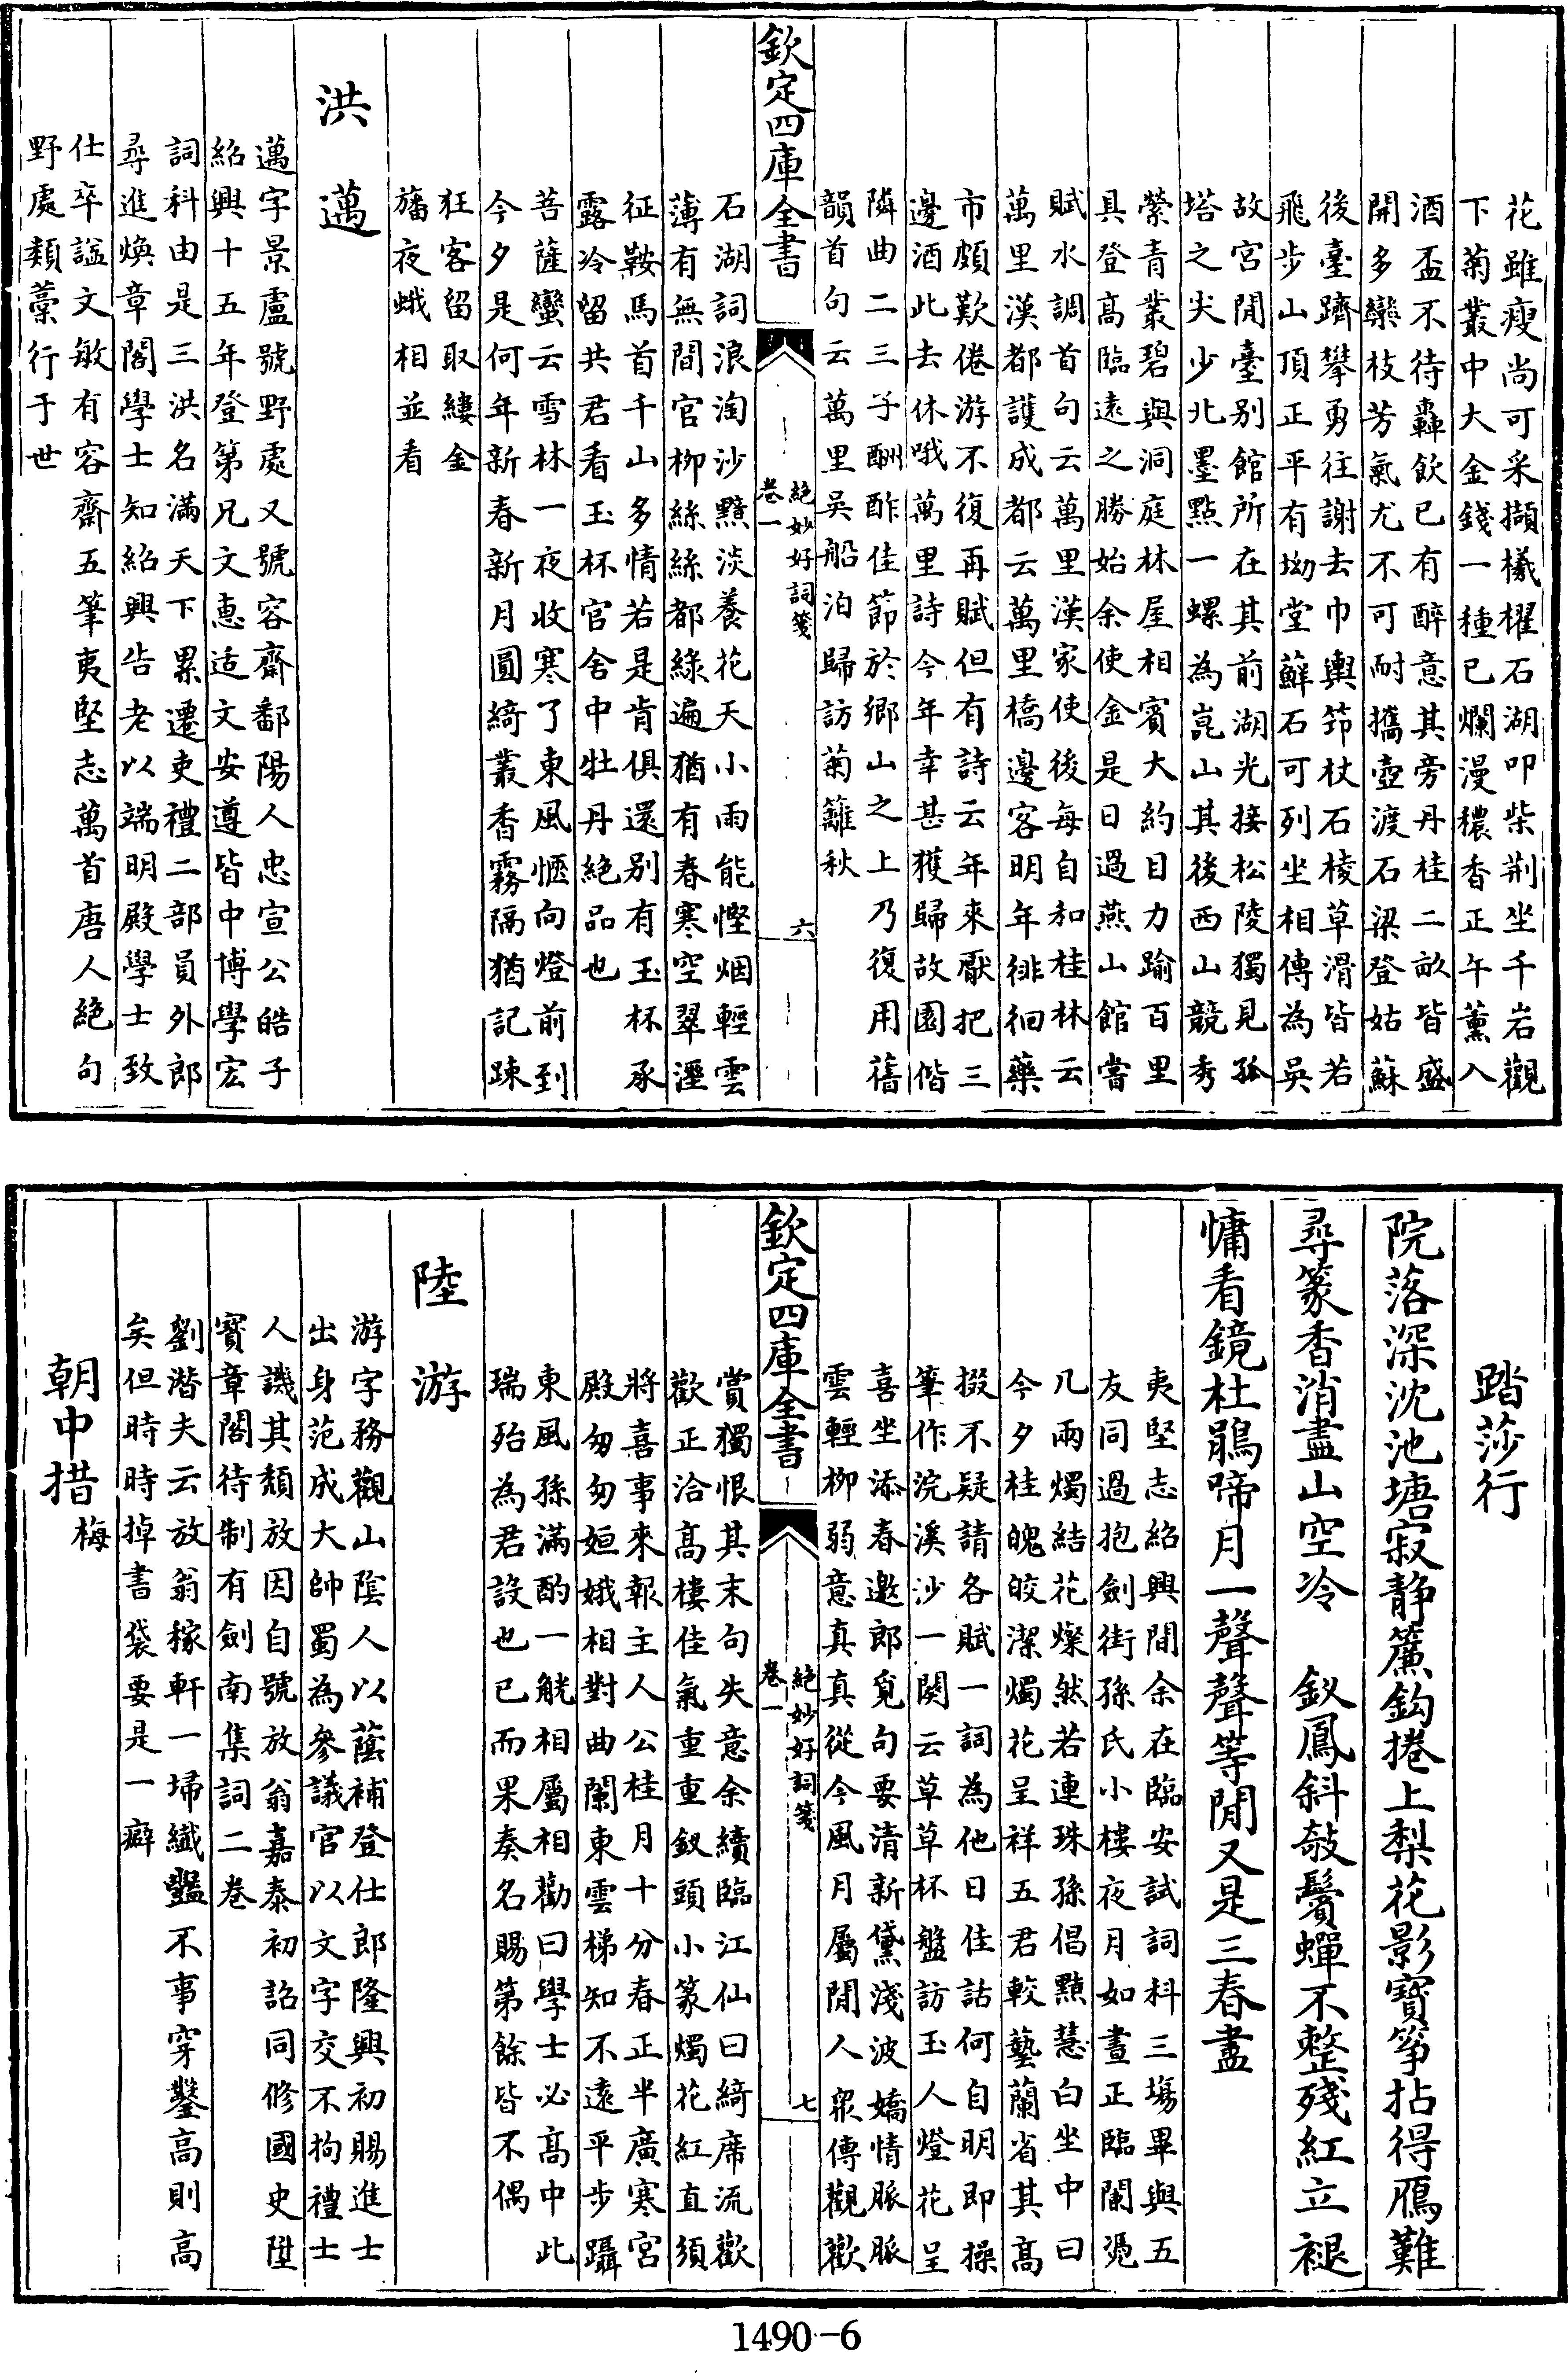 花雖瘦尚可采擷檥櫂石湖叩柴荆坐千岩觀
下菊叢中大金錢一種已爛漫穠香正午薰入
酒盃不待轟飲已有醉意其旁丹桂二畝皆盛
開多欒枝芳氣尤不可耐攜壺渡石梁登姑蘇
後臺躋攀勇往謝去巾輿笻杖石棱草滑皆若
飛步山頂正平有坳堂蘚石可列坐相傳為吳
故宮閒臺别館所在其前湖光接松陵獨見孤
塔之尖少北墨點一螺為崑山其後西山競秀
縈青叢碧與洞庭林屋相賓大約目力踰百里
具登髙臨遠之勝始余使金是日過燕山館嘗
賦水調首句云萬里漢家使後每自和桂林云
萬里漢都護成都云萬里橋邊客明年徘徊藥
市頗歎倦游不復再賦但有詩云年來厭把三
邊酒此去休哦萬里詩今年幸甚獲歸故園偕
隣曲二三子酬酢佳節於鄉山之上乃復用舊
韻首句云萬里吳船泊歸訪菊籬秋
欽定四庫全書
絶妙好詞箋
卷一
六
石湖詞浪淘沙黯淡養花天小雨能慳烟輕雲
薄有無間官栁絲絲都緑遍猶有春寒空翠溼
征鞍馬首千山多情若是肯俱還别有玉杯承
露冷留共君看玉杯官舍中牡丹絶品也
菩薩蠻云雪林一夜收寒了東風愜向燈前到
今夕是何年新春新月圓綺叢香霧隔猶記踈
狂客留取縷金
旛夜蛾相並看
洪邁
邁字景盧號野處又號容齋鄱陽人忠宣公皓子
紹興十五年登第兄文惠适文安遵皆中博學宏
詞科由是三洪名滿天下累遷吏禮二部員外郎
尋進煥章閣學士知紹興告老以端明殿學士致
仕卒諡文敏有容齋五筆夷堅志萬首唐人絶句
野處類藳行于世
踏莎行
院落深沈池塘寂静簾鈎捲上梨花影寶箏拈得鴈難
尋篆香消盡山空冷　釵鳳斜敧鬢蟬不整殘紅立褪
慵看鏡杜鵑啼月一聲聲等閒又是三春盡
夷堅志紹興間余在臨安試詞科三塲畢與五
友同過抱劍街孫氏小樓夜月如晝正臨闌凭
几兩燭結花燦然若連珠孫倡黠慧白坐中曰
今夕桂魄皎潔燭花呈祥五君較藝蘭省其髙
掇不疑請各賦一詞為他日佳話何自明即操
筆作浣溪沙一闋云草草杯盤訪玉人燈花呈
喜坐添春邀郎覓句要清新黛淺波嬌情脈脈
雲輕栁弱意真真從今風月屬閒人衆傳觀歡
欽定四庫全書
絶妙好詞箋
卷一
七
賞獨恨其末句失意余續臨江仙曰綺席流歡
歡正洽髙樓佳氣重重釵頭小篆燭花紅直須
將喜事來報主人公桂月十分春正半廣寒宮
殿匆匆姮娥相對曲闌東雲梯知不遠平步躡
東風孫滿酌一觥相屬相勸曰學士必髙中此
瑞殆為君設也已而果奏名賜第餘皆不偶
陸游
游字務觀山陰人以蔭補登仕郎隆興初賜進士
出身范成大帥蜀為參議官以文字交不拘禮士
人譏其頹放因自號放翁嘉泰初詔同修國史陞
寳章閣待制有劍南集詞二卷
劉潛夫云放翁稼軒一埽纖豔不事穿鑿高則高
矣但時時掉書袋要是一癖
朝中措梅
1490-6